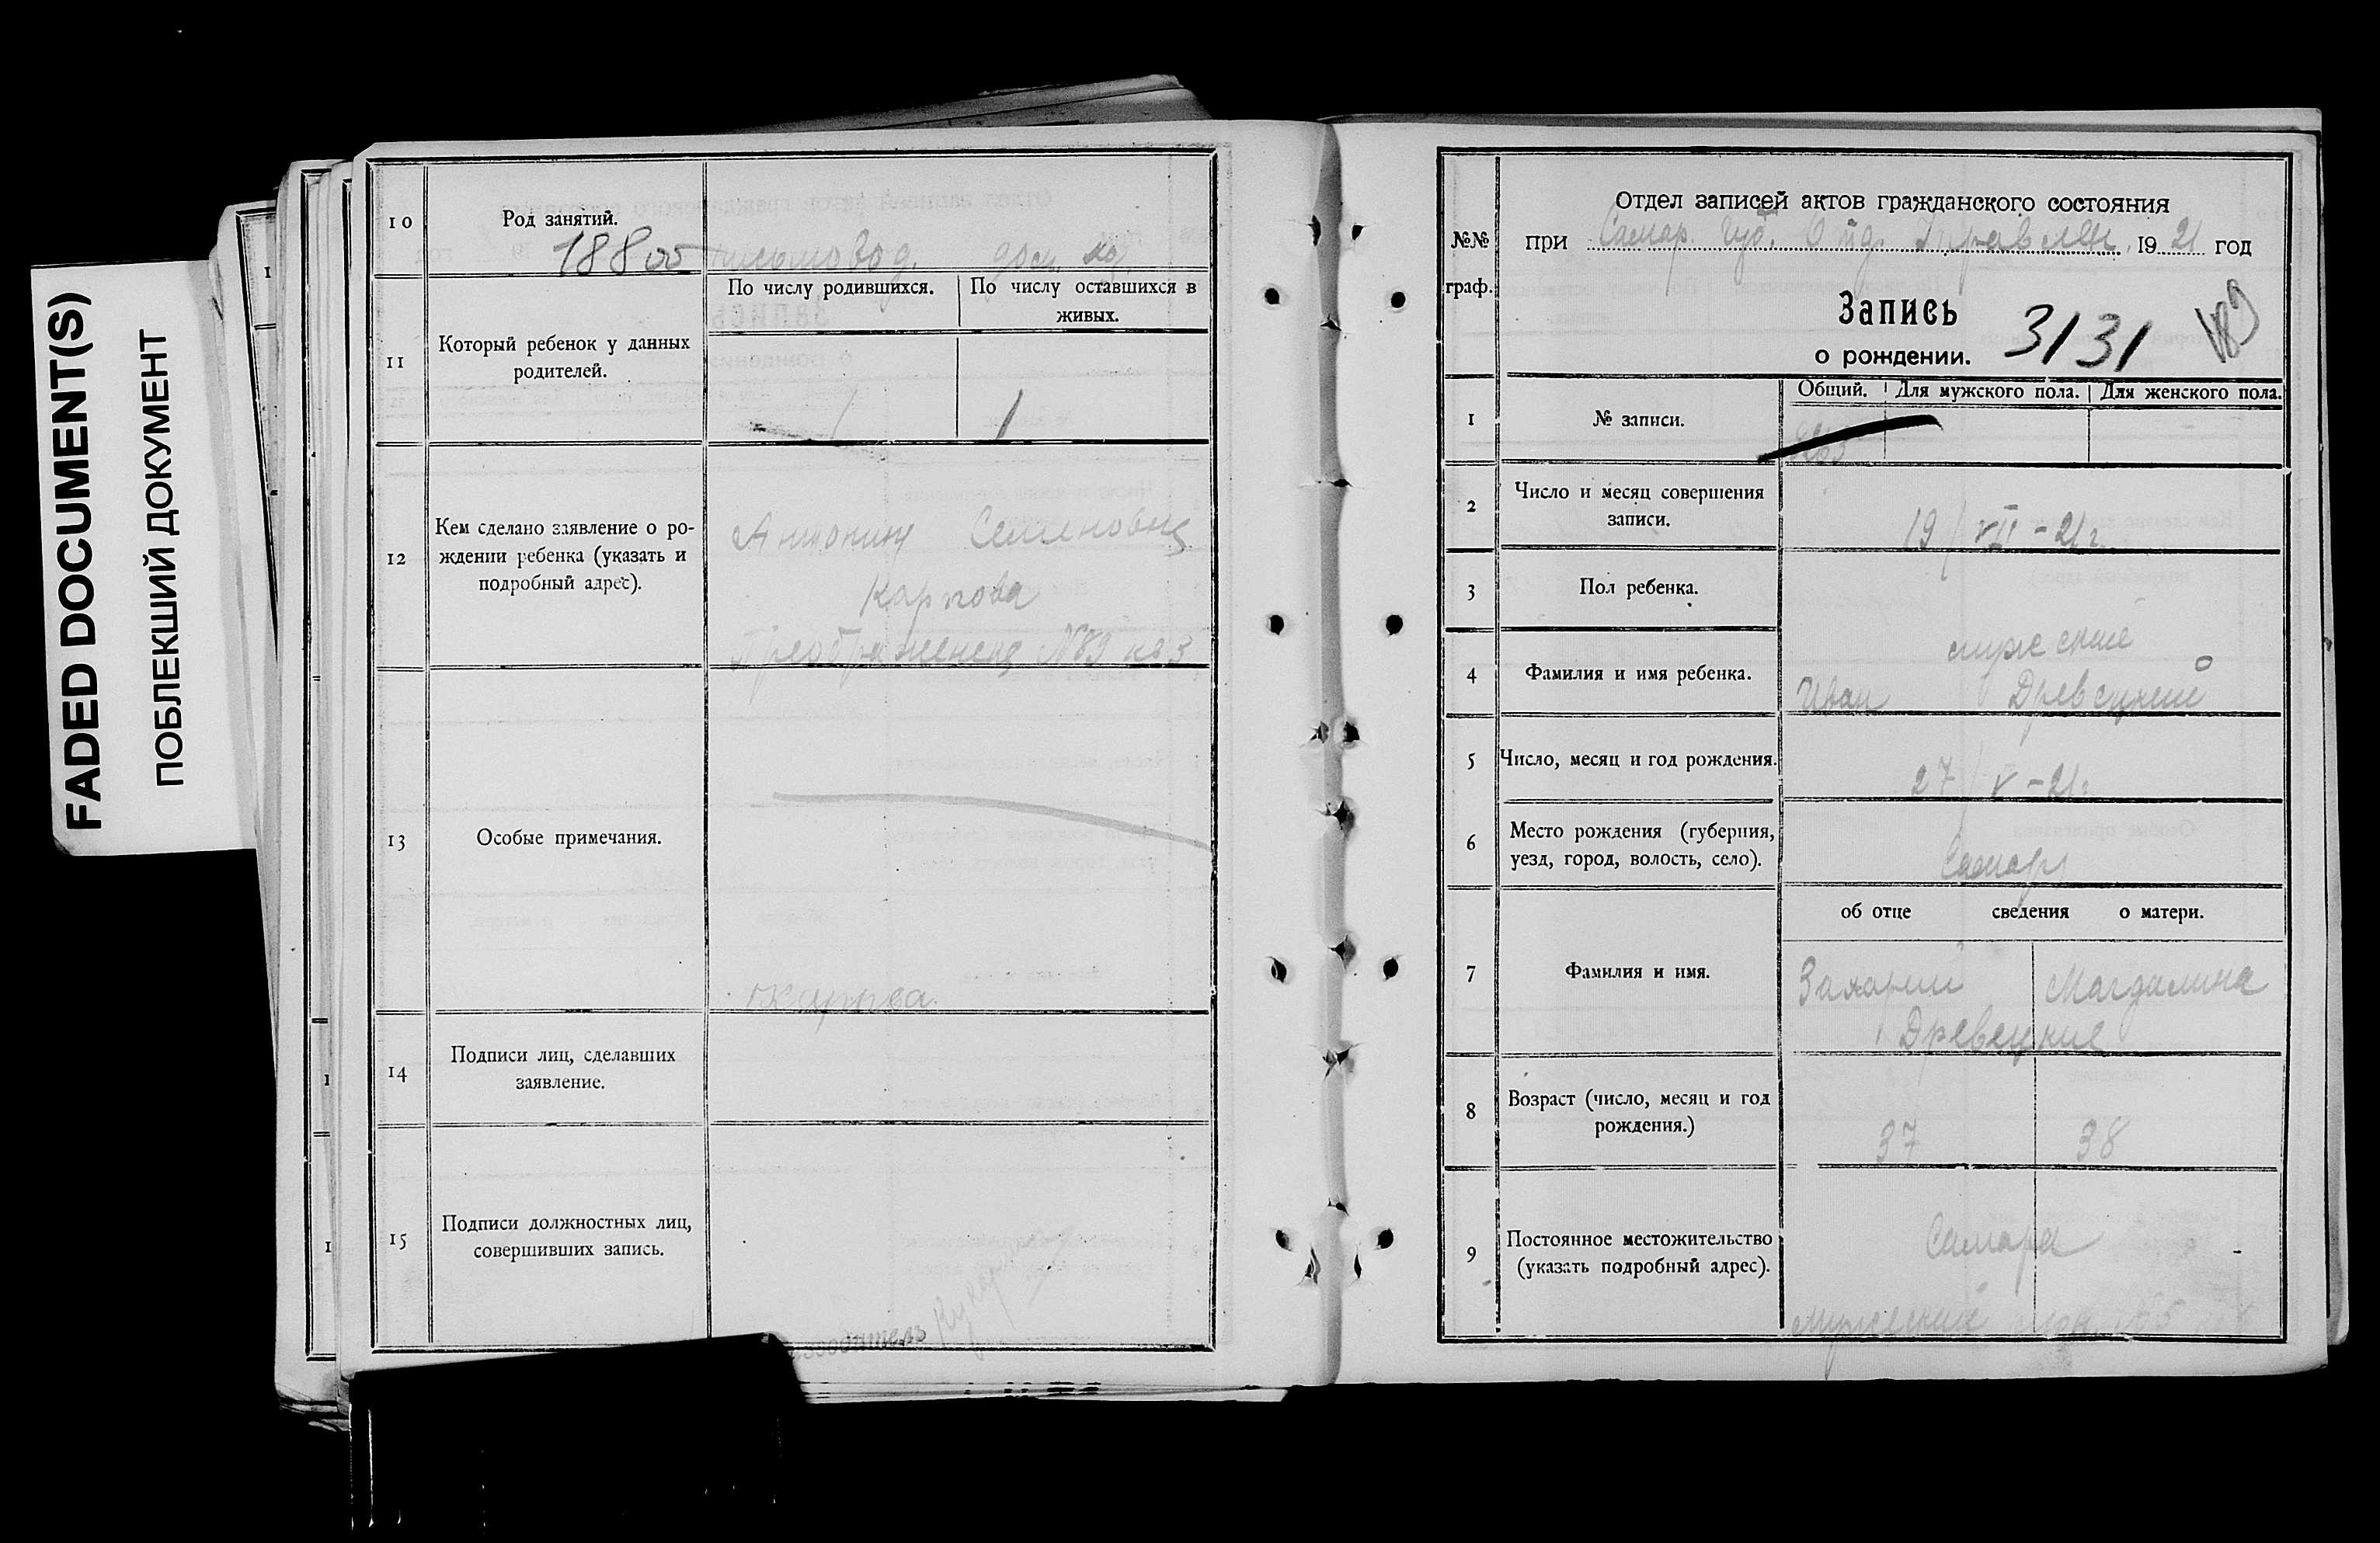 FADED DOCUMENT(S)
ПОБЛЕКШИЙ ДОКУМЕНТ
10
Род занятий.
188
письмовод. дом. хоз.
11
Который ребенок у данных
родителей.
По числу родившихся.
По числу оставшихся в
живых.
1
1
12
Кем сделано заявление о ро-
ждении ребенка (указать и
подробный адрес).
Антонина Семеновна
Карпова
Преображенск № 89 кв 3
13
Особые примечания.
14
Подписи лиц, сделавших
заявление.
15
Подписи должностных лиц,
совершивших запись.
№№
граф.
Отдел записей актов гражданского состояния
при Самар. Губ. Отд. Управлен. 1921 год
Запись
о рождении.
3131
1
№ записи.
Общий.
Для мужского пола.
Для женского пола.
2
Число и месяц совершения
записи.
19/VII-21г.
3
Пол ребенка.
мужский
4
Фамилия и имя ребенка.
Иван Древецкий
5
Число, месяц и год рождения.
27/V-21г
6
Место рождения (губерния,
уезд, город, волость, село).
Самара
об отце сведения о матери.
7
Фамилия и имя.
Захарий
Магдалина
Древецкие
8
Возраст (число, месяц и год
рождения.)
37
38
9
Постоянное местожительство
(указать подробный адрес).
Самара